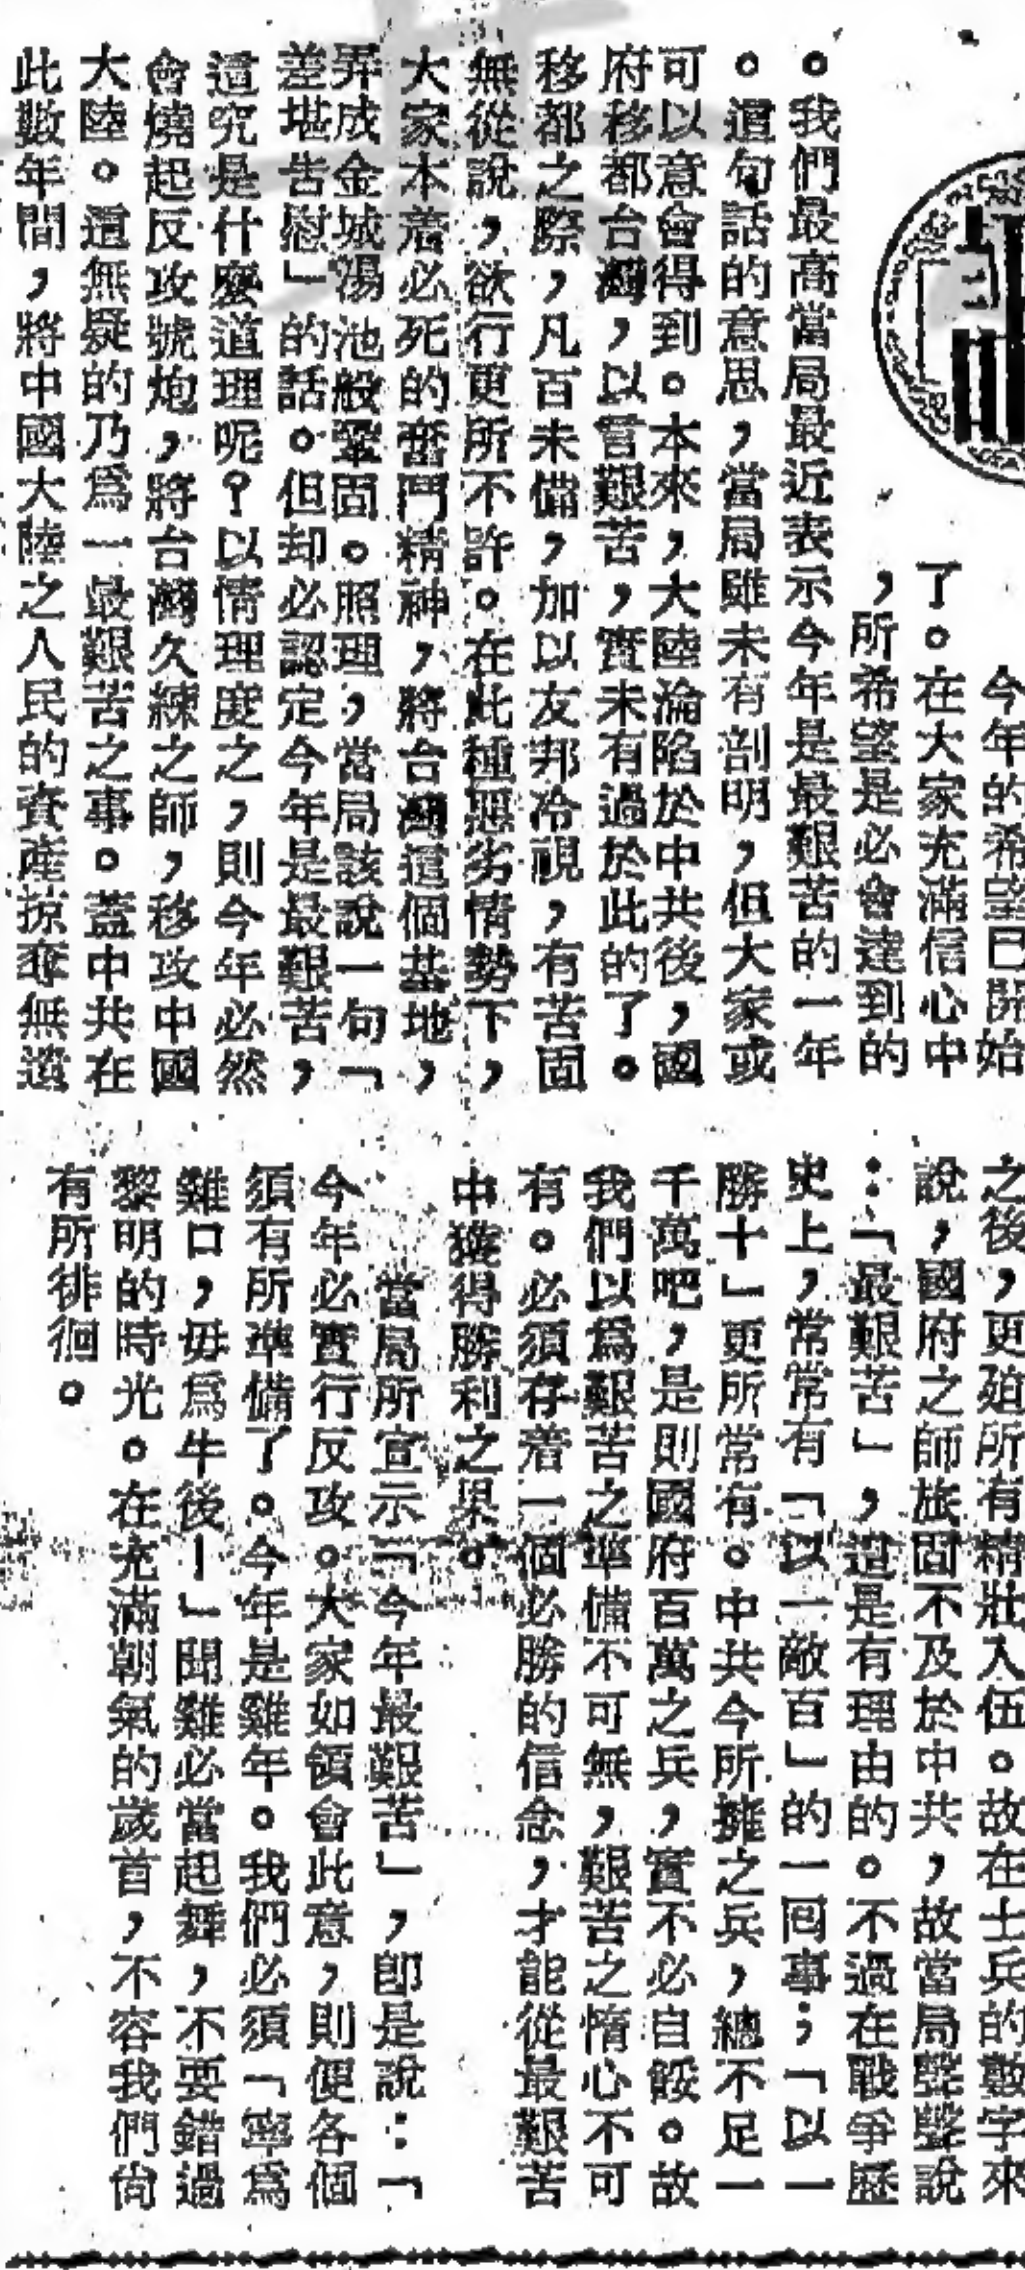 今年的希望已開始
了。在大家充滿信心中
,所希望是必會達到的
。我們最高當局最近表示今年是最艱苦的一年
。這句話的意思,當局雖未有剖明,但大家或
可以意會得到。本來,大陸淪陷於中共後,國
府移都台灣,以言艱苦,實未有過於此的了。
移都之際,凡百未備,加以友邦冷視,有苦固
無從說,欲行更所不許。在此種惡劣情勢下,
大家本着必死的奮鬥精神,將台灣這個基地,
弄成金城湯池般鞏固。照理,當局該說一句「
差堪告慰」的話。但却必認定今年是最艱苦,
這究是什麼道理呢?以情理度之,則今年必然
會燒起反攻號炮,將台灣久練之師,移攻中國
大陸。這無疑的乃爲一最艱苦之事。蓋中共在
此數年間,將中國大陸之人民的資產掠奪無遺
之後,更迫所有精壯入伍。故在士兵的數字來
說,國府之師旅固不及於中共,故當局聲聲說
:「最艱苦」,這是有理由的。不過在戰爭歷
史上,常常有「以一敵百」的一囘事;「以一
勝十」更所常有。中共今所擁之兵,總不足一
千萬吧,是則國府百萬之兵,實不必自餒。故
我們以爲艱苦之準備不可無,艱苦之惰心不可
有。必須存着一個必勝的信念,才能從最艱苦
中獲得勝利之果。
當局所宣示「今年最艱苦」,卽是說:「
今年必實行反攻。大家如領會此意,則便各個
須有所準備了。今年是雞年。我們必須「寧爲
雞口,毋爲牛後!」聞雞必當起舞,不要錯過
黎明的時光。在充滿朝氣的歲首,不容我們尙
有所徘徊。